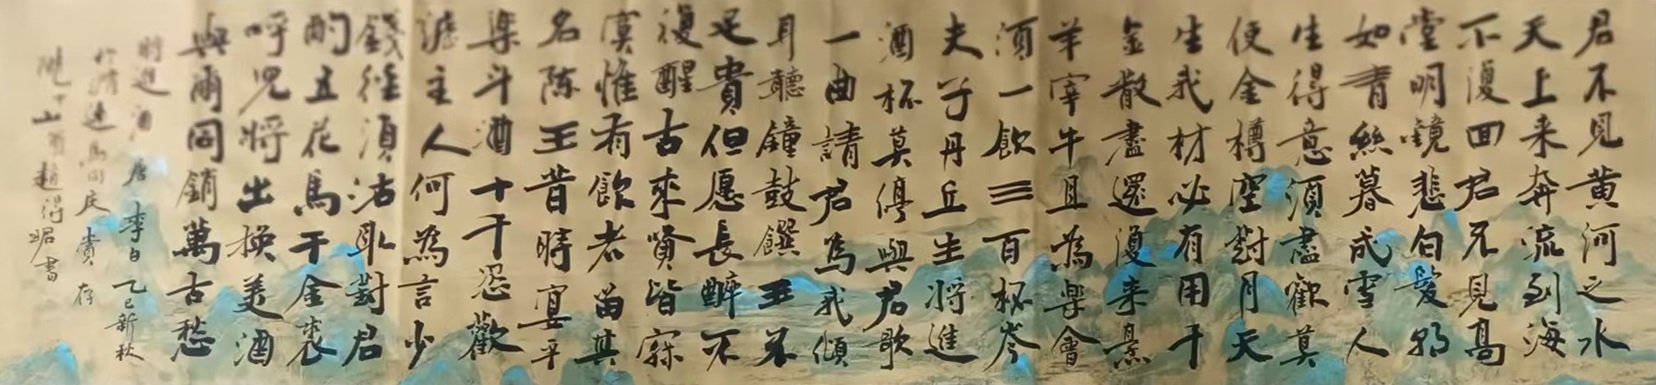 君不見黄河之水
天上来奔流到海
不復回君不見高
堂明鏡悲白髮朝
如青絲暮成雪人
生得意須盡歡莫
使金樽空對月天
生我材必有用千
金散盡還復来烹
羊宰牛且為樂會
須一飲三百杯岑
夫子丹丘生将進
酒杯莫停與君歌
一曲請君為我傾
耳聽鐘鼓饌玉不
足貴但愿長醉不
復醒古來賢皆寂
寞惟有飲者留其
名陳王昔時宴平
樂斗酒十千恣歡
謔主人何為言少
錢徑須沽取對君
酌五花馬千金裘
呼兒将出換美酒
與爾同銷萬古愁
將進酒 唐 李白 乙巳新秋
賞存
趙得珺書